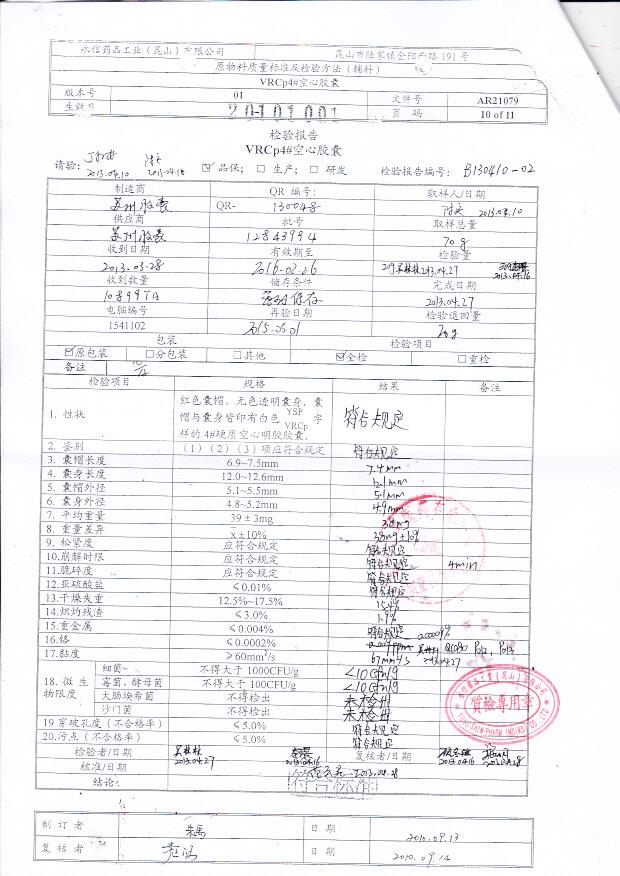 永信药品工业(昆山)有限公司 昆山市陆家镇金阳西路191号
原物料质量标准及检验方法(辅料)
VRCp4#空心胶囊
版本号 01 文件号 AR21079
生效日 20101001 页 码 10 of 11
检验报告
VRCp4#空心胶囊
请验: 2013.04.10 2013.04.10 ☑品保; □生产; □研发 检验报告编号: B130410-02
制造商 QR 编号: 取样人/日期
苏州胶囊 QR- 130048 2013.04.10
供应商 批号 取样总量
苏州胶囊 12843994 70g
收到日期 有效期至 检验量
2013.03.28 2016-02-26 2013.04.27 2013.04.16
收到数量 储存条件 完成日期
密封保存 2013.04.27
电脑编号 再验日期 检验退回量
1541102 2015.05.01
包装 检验项目
☑原包装 □分包装 □其他 ☑全检 □重检
备注
检验项目 规格 结果 备注
1. 性状 红色囊帽、无色透明囊身,囊帽与囊身皆印有白色 YSP VRCp 字样的4#硬质空心明胶胶囊。 符合规定
2. 鉴别 (1)(2)(3)项应符合规定 符合规定
3. 囊帽长度 6.9~7.5mm 7.4mm
4. 囊身长度 12.0~12.6mm 12.1mm
5. 囊帽外径 5.1~5.5mm 5.1mm
6. 囊身外径 4.8~5.2mm 4.9mm
7. 平均重量 39±3mg 38mg
8. 重量差异 x±10% 38mg±10%
9. 松紧度 应符合规定 符合规定
10.崩解时限 应符合规定 符合规定 4min
11.脆碎度 应符合规定 符合规定
12.亚硫酸盐 ≤0.01% 符合规定
13.干燥失重 12.5%~17.5% 15.4%
14.炽灼残渣 ≤3.0% 1.9%
15.重金属 ≤0.004% 符合规定
16.铬 ≤0.0002% 0.00009%
17.黏度 ≥60mm²/s 67mm²/s 2013.04.27
18.微生物限度 细菌 不得大于1000CFU/g <10cfu/g
霉菌、酵母菌 不得大于100CFU/g <10cfu/g
大肠埃希菌 不得检出 未检出
沙门菌 不得检出 未检出
19 穿破孔度(不合格率) ≤3.0% 符合规定
20.污点(不合格率) ≤5.0% 符合规定
检验者/日期 2013.04.27 2013.04.16 复核者/日期 2013.04.16 2013.04.28
核准/日期 2013.04.28
结论: 符合标准
永信药品工业(昆山)有限公司
质检专用章
制订者 日期 2010.09.13
复核者 日期 2010.09.14